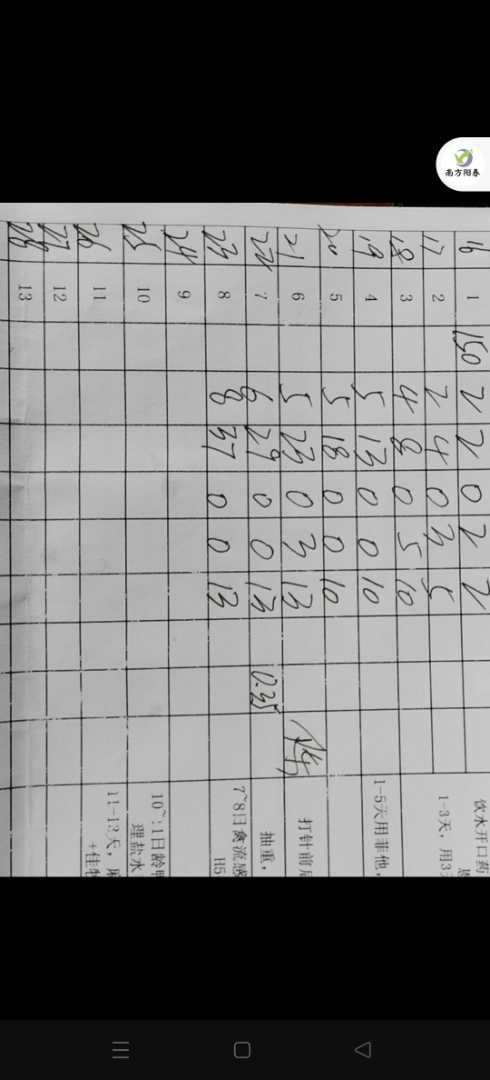 南方阳春
16 1 150 2 2 0 2 2 饮水开口药
17 2 2 4 0 3 5 1-3天，用3
18 3 4 8 0 5 10
19 4 5 13 0 0 10 1-5天用菲他，
20 5 5 18 0 0 10
21 6 5 23 0 3 13 打针前后
22 7 6 29 0 0 13 0.35 抽重，
23 8 8 37 0 0 13 7~8日禽流感
H5
24 9
25 10 10~11日龄
理盐水
26 11 11-13天，
+佳
27 12
28 13